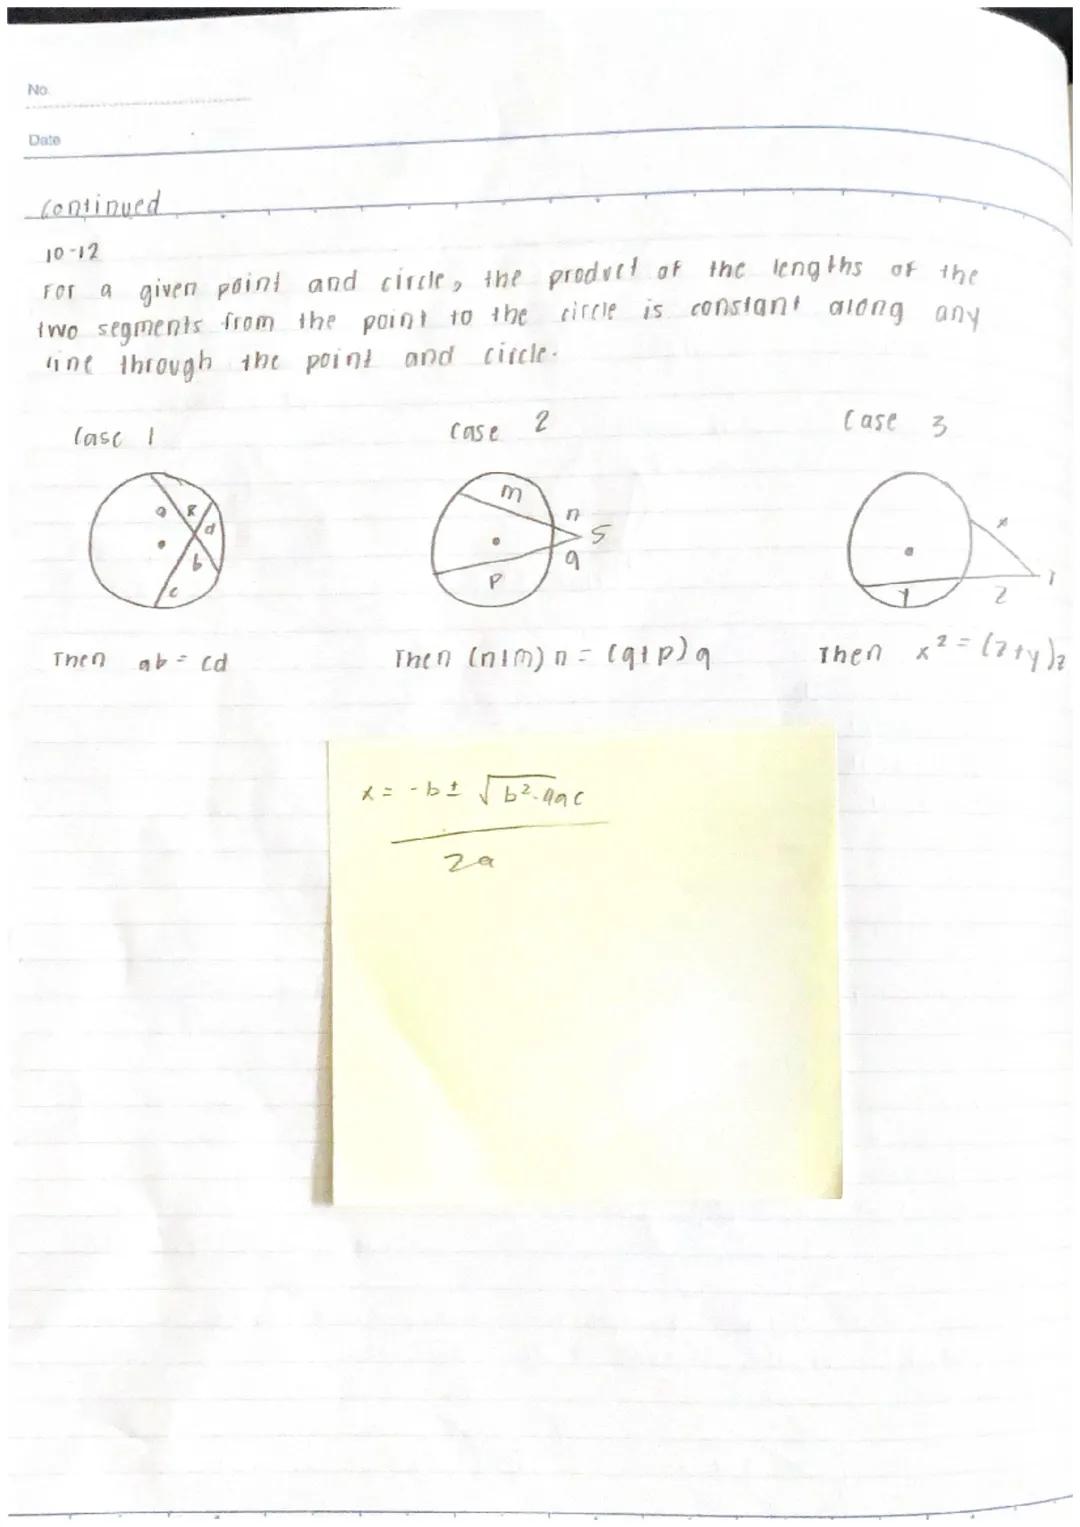 No.
Date
continued
10-12
For a given point and circle, the product of the lengths of the
two segments from the point to the circle is constant along any
line through the point and circle.
Case 1
Case 2
Case 3
a
R
d
b
c
m
n
S
q
p
x
T
y
z
Then ab = cd
Then (n+m) n = (q+p) q
Then x² = (z+y)z
x = -b ± √b²-4ac
2a